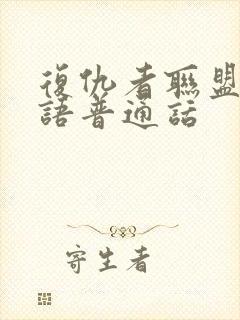 復仇者聯盟
語普通話
寄生者